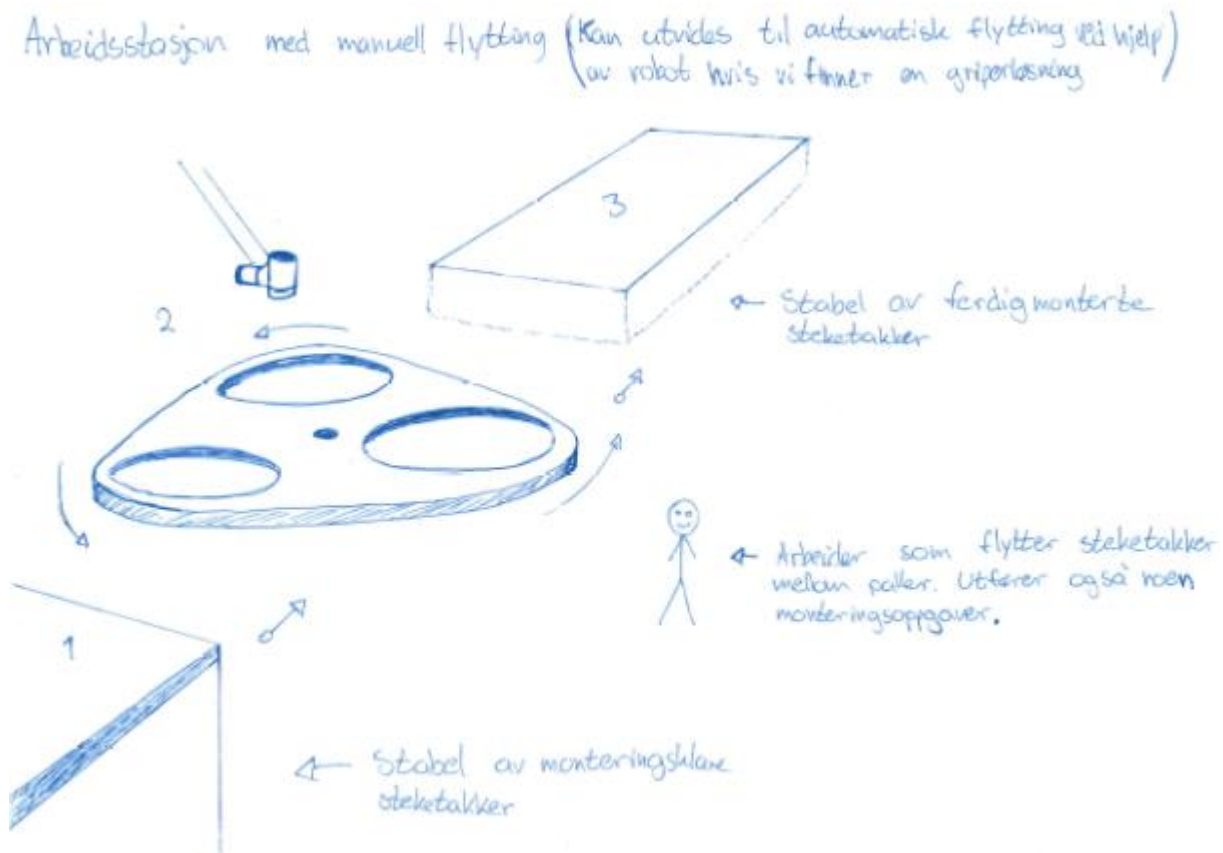 Arbeidsstasjon med manuell flytting (Kan utvides til automatisk flytting ved hjelp
av robot hvis vi finner en griperløsning)
3
2
← Stabel av ferdigmonterte
steketakker
← Arbeider som flytter steketakker
mellom paller. Utfører også noen
monteringsoppgaver.
1
← Stabel av monteringsklare
steketakker